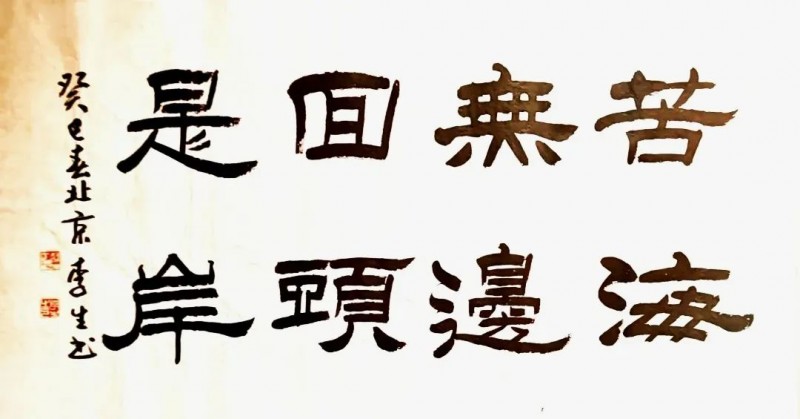 苦海
無邊
回頭
是岸
癸巳春北京李生书